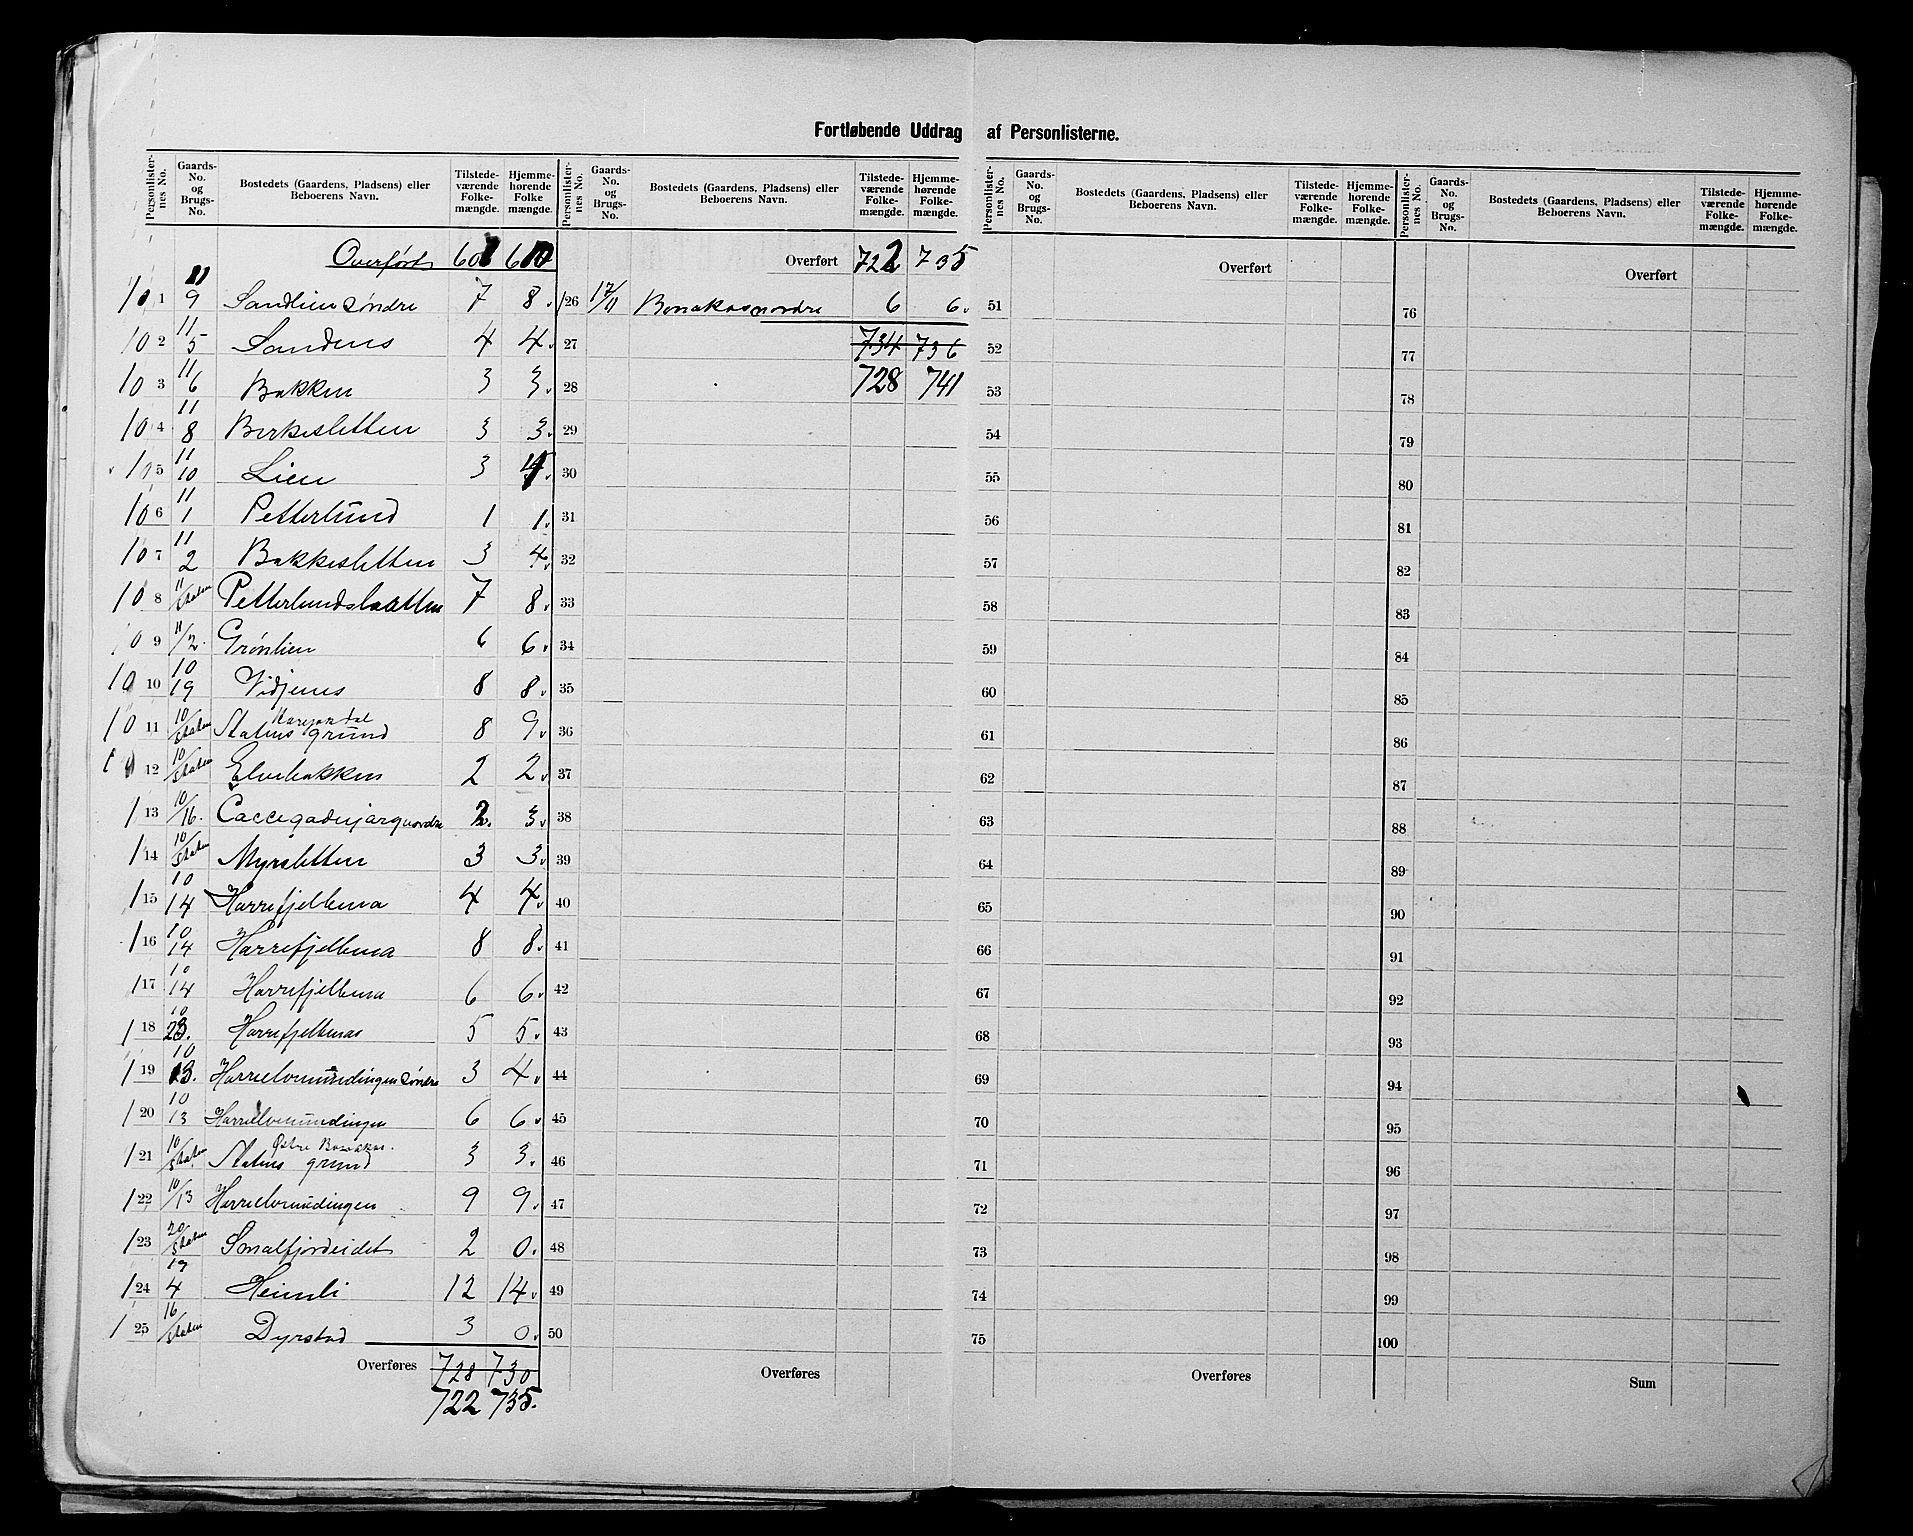 Fortløbende Uddrag af Personlisterne.
Personlister-nes No. Gaards-No. og Brugs-No. Bostedets (Gaardens, Pladsens) eller Beboerens Navn. Tilstede-værende Folke-mængde. Hjemme-hørende Folke mængde.
Overført 601 610
10 1 11 9 Sandlien söndre 7 8
10 2 11 5 Sandens 4 4
10 3 11 6 Bakken 3 3
10 4 11 8 Birkesletten 3 3
10 5 11 10 Lien 3
10 6 11 1 Petterlund 1 1
10 7 11 2 Bakkesletten 3 4
10 8 11 Staten Petterlundslaatten 7 8
10 9 11/2 Grønlien 6 6
10 10 10 19 Vidjenes 8 8
10 11 10/Staten Statens grund 8 9
12 10/Staten Elvebakken 2 2
1 13 10/16 Caccegadnjarg nordre 2 3
1 14 10/Staten Myrsletten 3 3
1 15 10 14 Harrefjellema 4 4
1 16 10 14 Harrefjellema 8 8
1 17 10 14 Harrefjellema 6 6
1 18 10 23 Harrefjellenas 5 5
1 19 10 13 Harrelvmundingen söndre 3 4
1 20 10 13 Harrelvmundingen 6 6
1 21 10/Staten Østre Bonakas Statens grund 3 3
1 22 10/13 Harrelvmundingen 9 9
1 23 20/Staten Smalfjordeidet 2 0
1 24 19 4 Heimli 12 14
1 25 16/Staten Dyrstad 3 0
Overføres 728 730
722 735
Personlister-nes No. Gaards-No. og Brugs-No. Bostedets (Gaardens, Pladsens) eller Beboerens Navn. Tilstede-værende Folke-mængde. Hjemme-hørende Folke-mængde.
Overført 722 735
1 26 17/11 Bonakas nordre 6 6
27 734 736
28 728 741
29
30
31
32
33
34
35
36
37
38
39
40
41
42
43
44
45
46
47
48
49
50
Overføres
Personlister-nes No. Gaards-No. og Brugs-No. Bostedets (Gaardens, Pladsens) eller Beboerens Navn. Tilstede-værende Folke-mængde. Hjemme-hørende Folke-mængde.
Overført
51
52
53
54
55
56
57
58
59
60
61
62
63
64
65
66
67
68
69
70
71
72
73
74
75
Overføres
Personlister-nes No. Gaards-No. og Brugs-No. Bostedets (Gaardens, Pladsens) eller Beboerens Navn. Tilstede-værende Folke-mængde. Hjemme-hørende Folke-mængde.
Overført
76
77
78
79
80
81
82
83
84
85
86
87
88
89
90
91
92
93
94
95
96
97
98
99
100
Sum